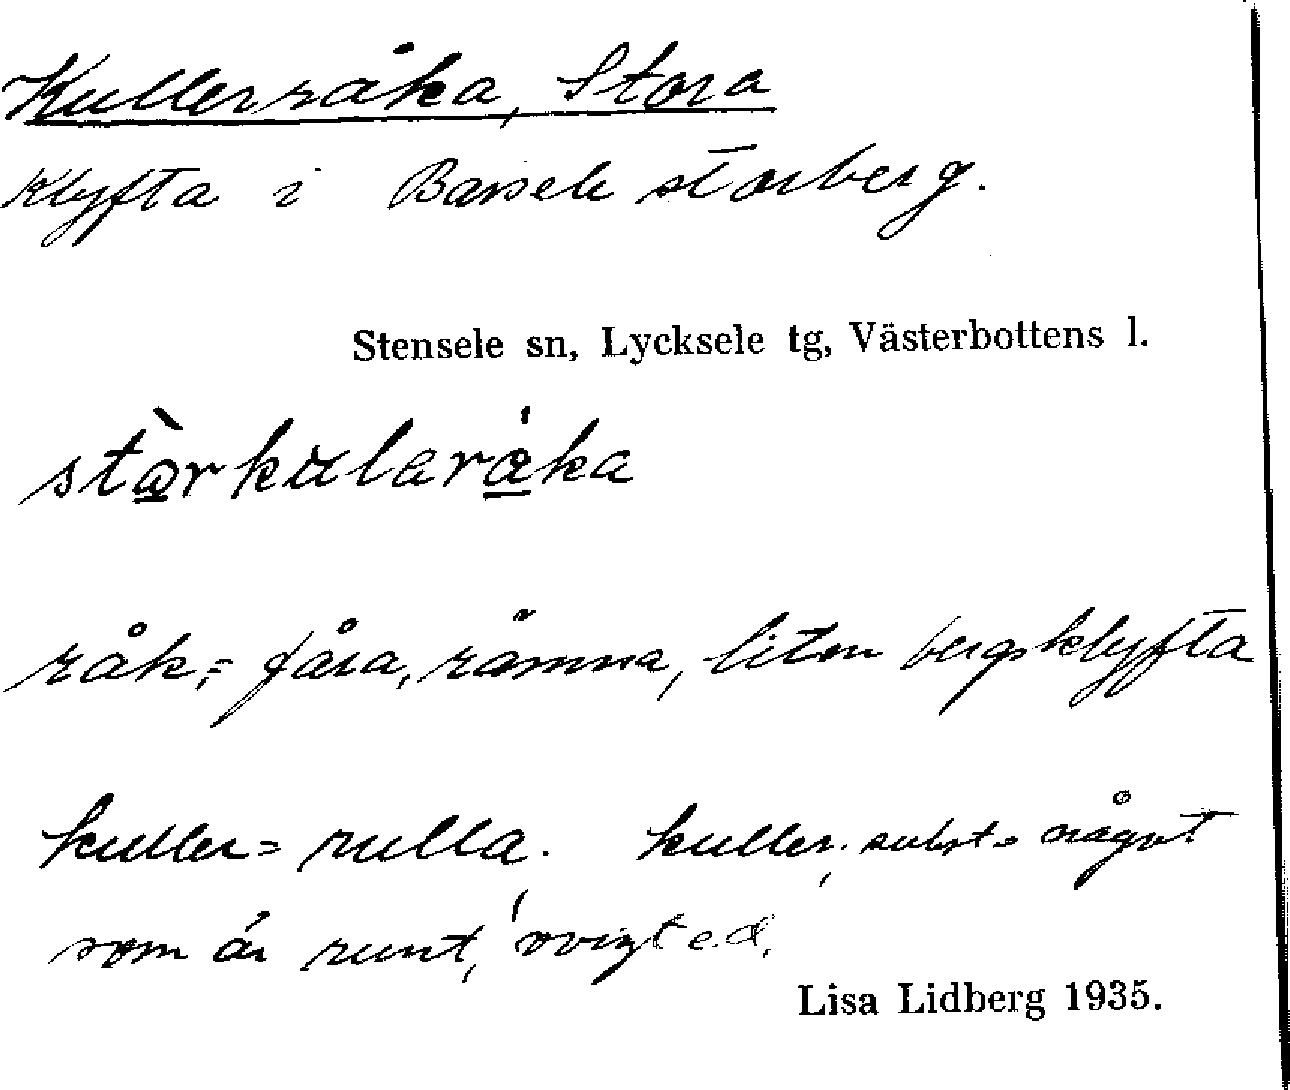 Kullerråka, Stora
Klyfta i Barsele storberg.
Stensele sn, Lycksele tg, Västerbottens l.
stòrkuleråka
råk, = fåra, rämna, liten bergsklyfta
kuller = rulla. kuller, subst = något
som är runt, ovigt e.d.
Lisa Lidberg 1935.